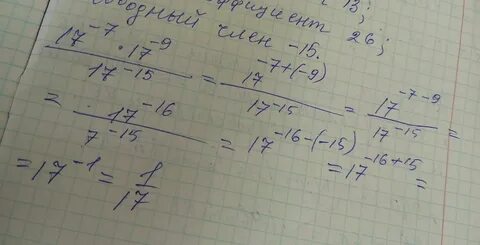 эффициент 13;
свободный член 26;
-15.
(17^-7 · 17^-9) / 17^-15 = 17^-7+(-9) / 17^-15 = 17^-7-9 / 17^-15 =
= 17^-16 / 7^-15 = 17^-16-(-15) = 17^-16+15 =
= 17^-1 = 1/17